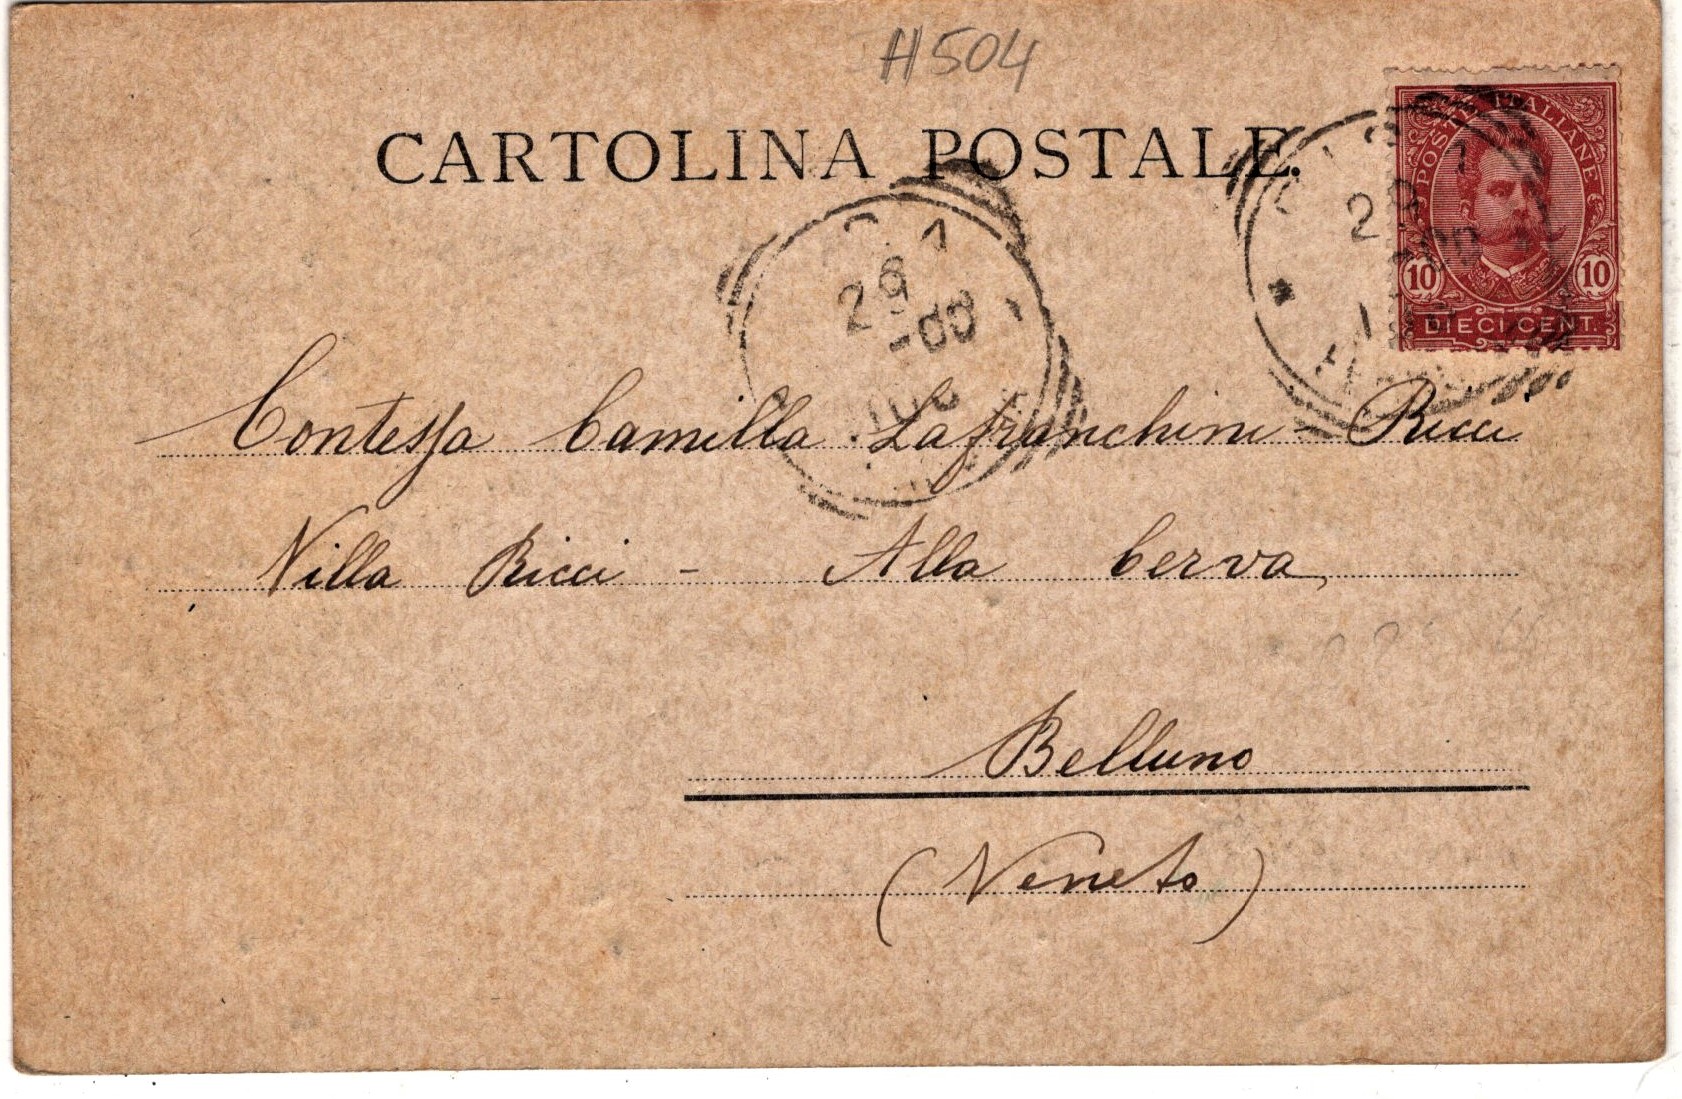 H504
CARTOLINA POSTALE.
POSTE ITALIANE
10 10
DIECI CENT.
26 9
-00
Contessa Camilla Lafranchini-Ricci
Villa Ricci - Alla Cerva
Belluno
(Veneto)